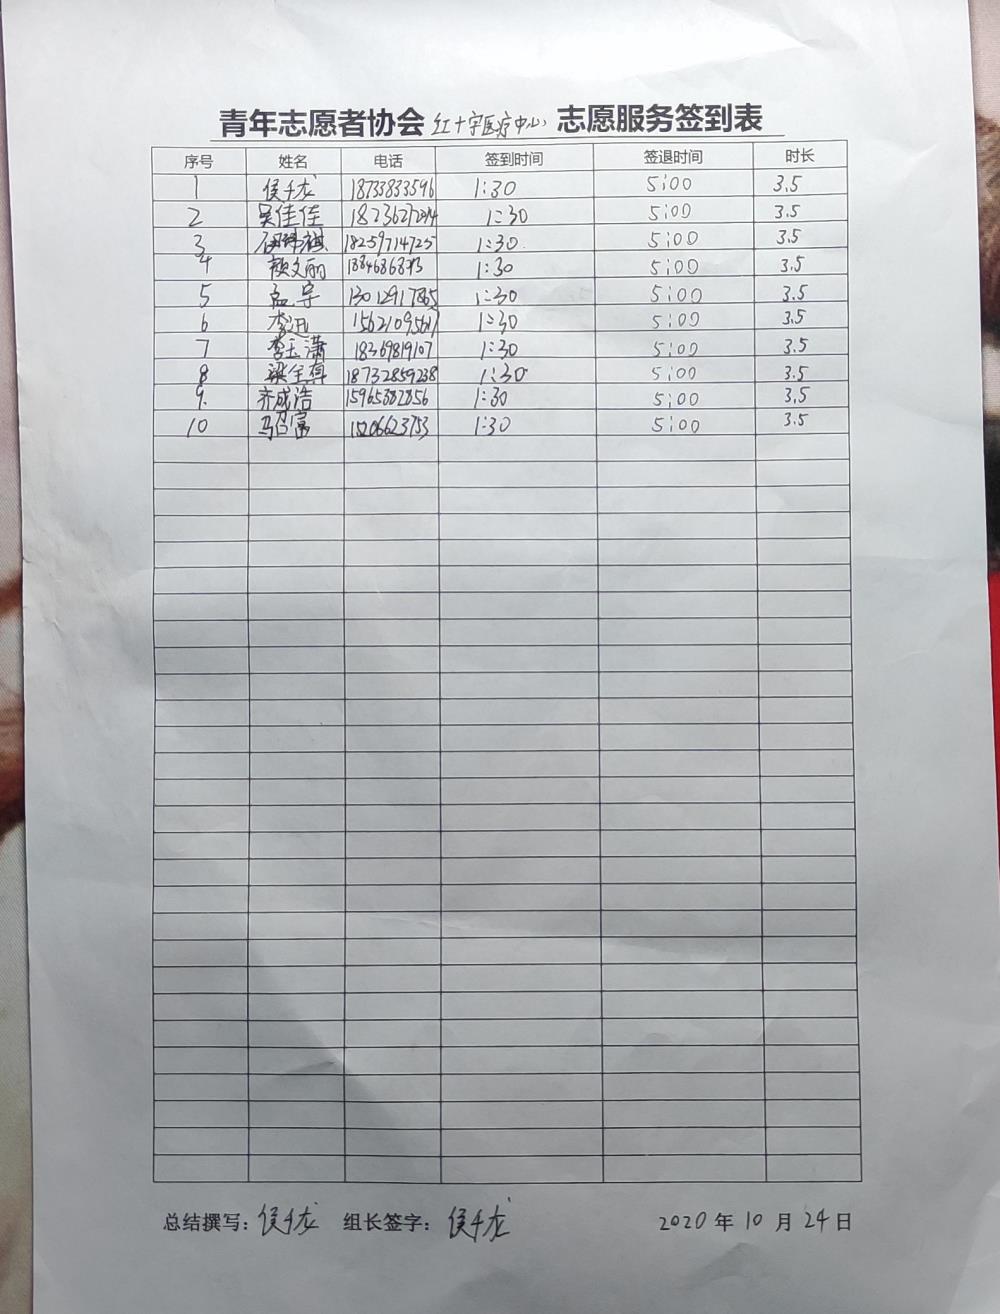 青年志愿者协会 红十字医疗中心 志愿服务签到表
序号 姓名 电话 签到时间 签退时间 时长
1 侯千龙 18733833596 1:30 5:00 3.5
2 吴佳佳 1:30 5:00 3.5
3 18259714725 1:30 5:00 3.5
4 文丽 1:30 5:00 3.5
5 孟宇 1:30 5:00 3.5
6 李迅 1:30 5:00 3.5
7 李玉潇 18369819107 1:30 5:00 3.5
8 18732859238 1:30 5:00 3.5
9. 齐成浩 15965382856 1:30 5:00 3.5
10 马召富 15206623753 1:30 5:00 3.5
总结撰写：侯千龙 组长签字：侯千龙 2020 年 10 月 24 日